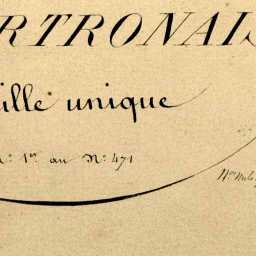 RTRONAIS
ille unique
N.° 1.er au N.° 471